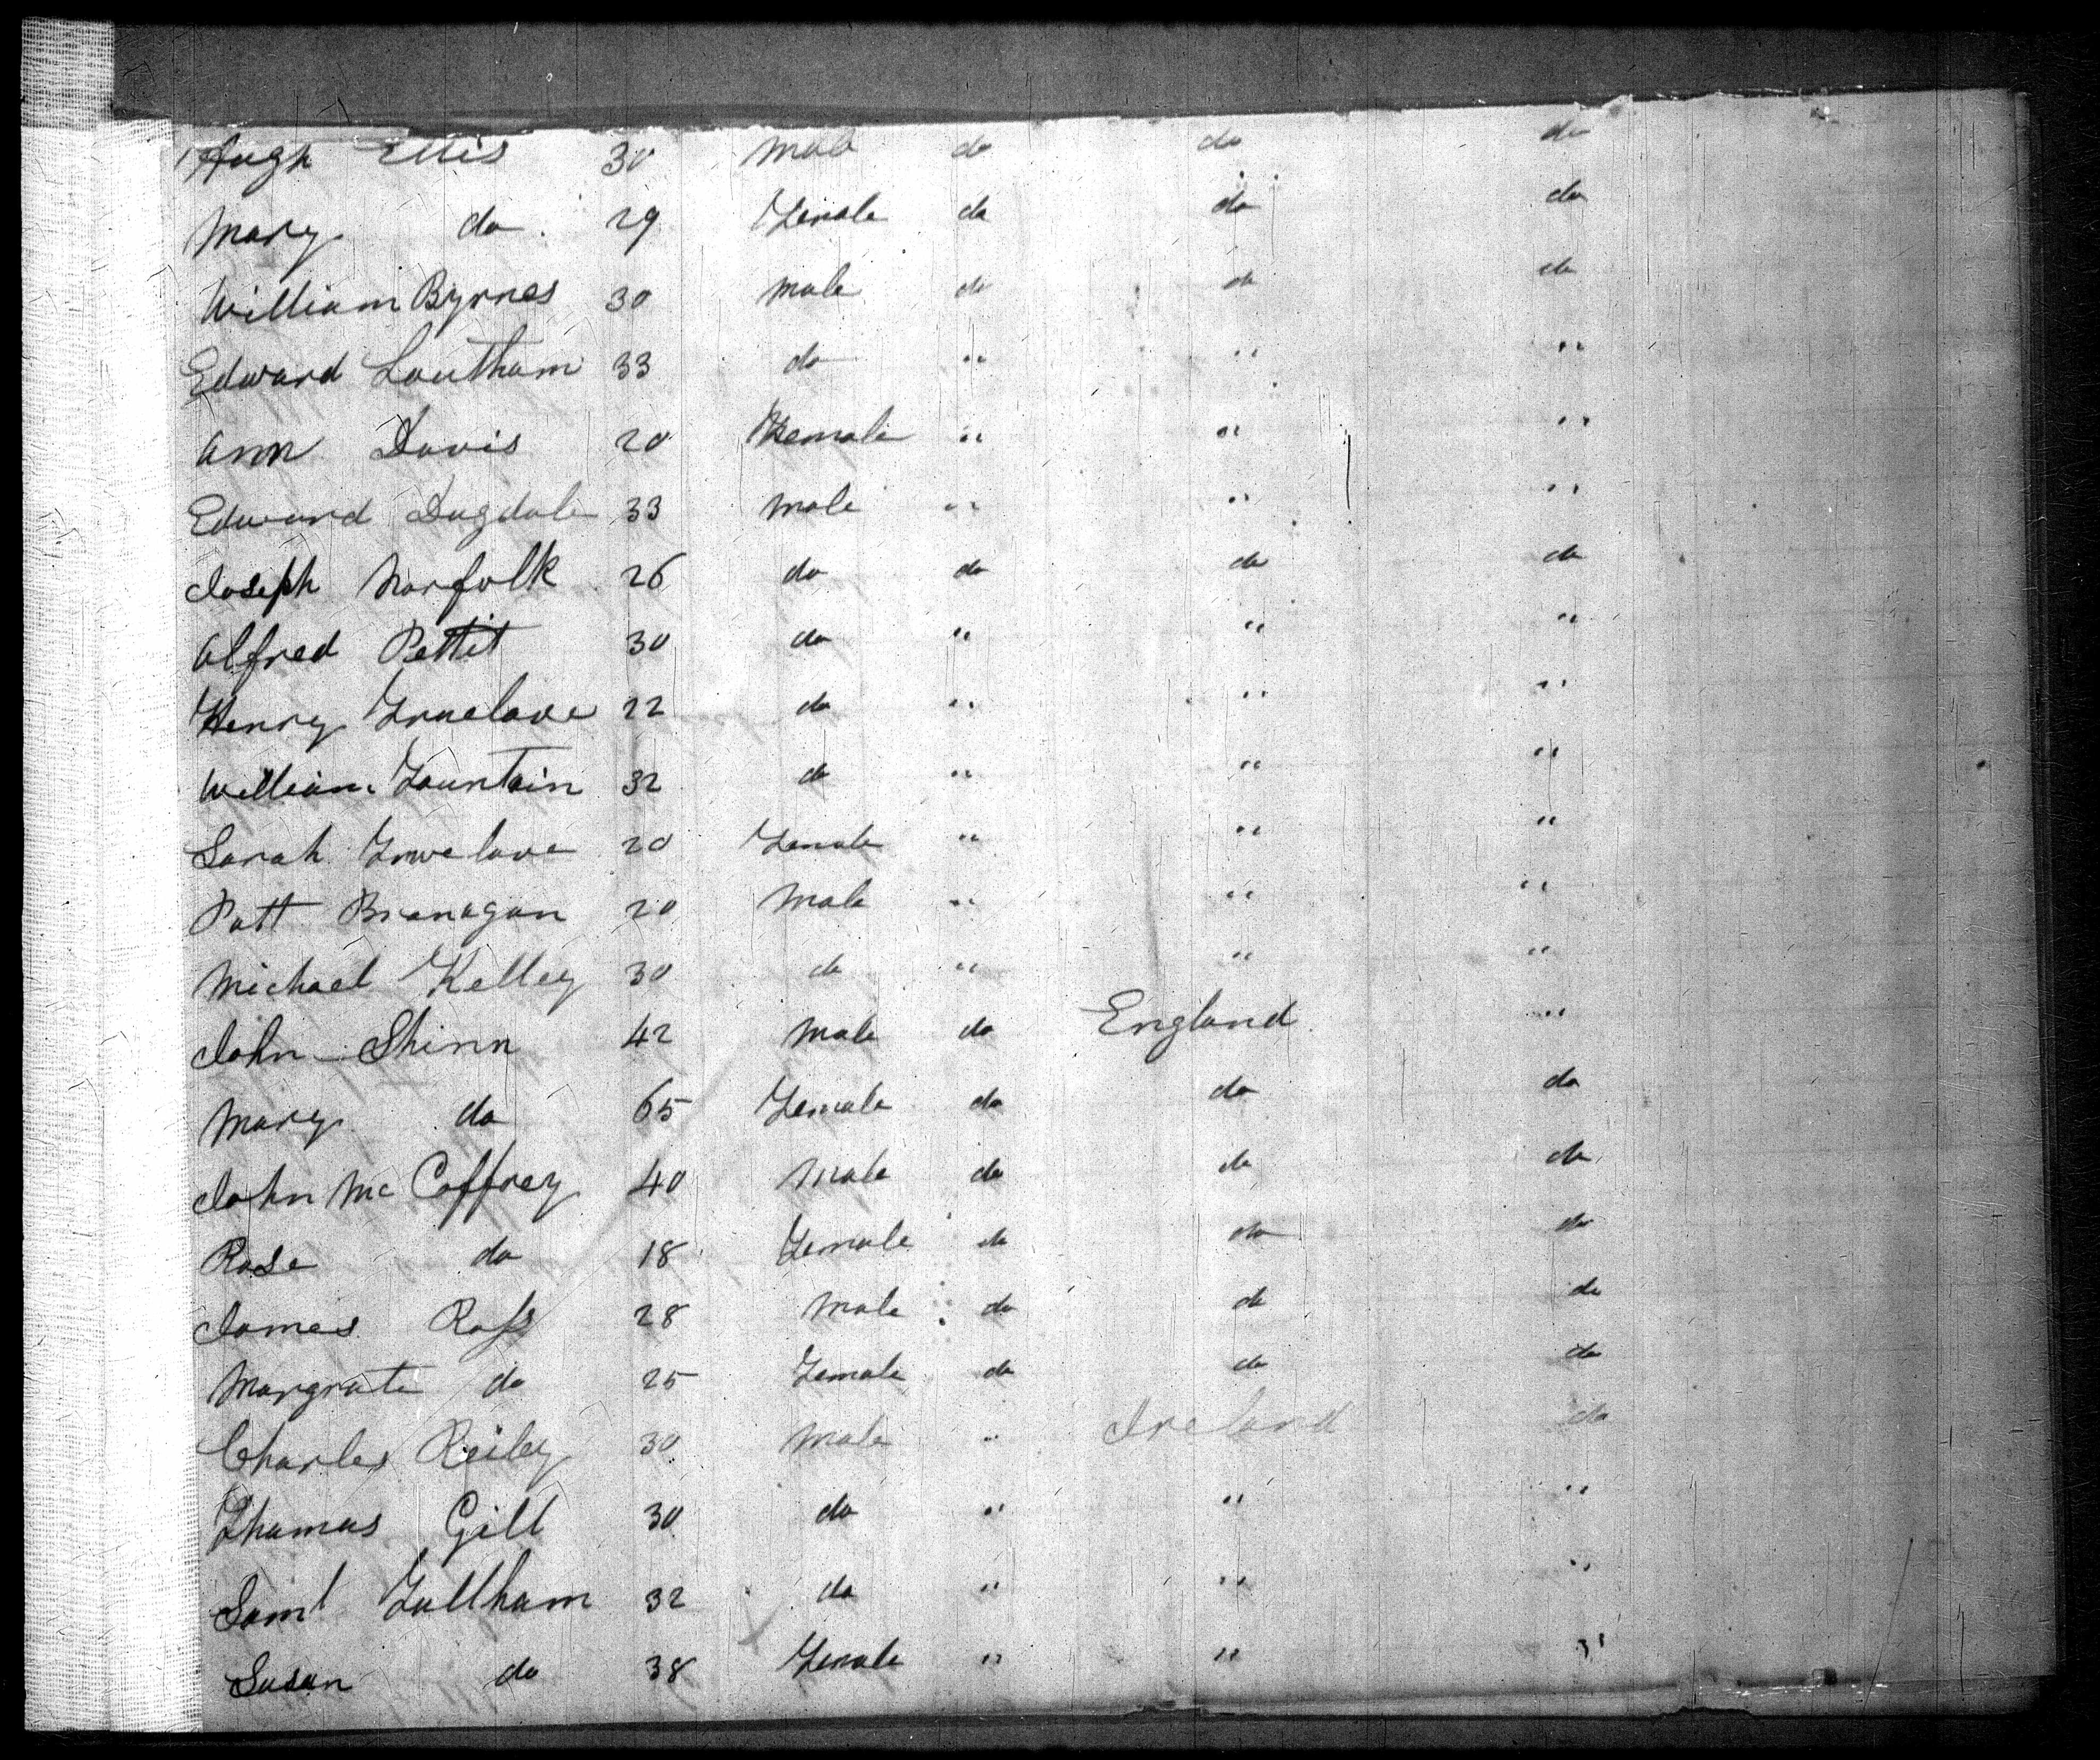 Hugh Ellis 30 Male do do do
Mary do 29 Female do do do
William Byrnes 30 Male do do do
Edward Loutham 33 do " " "
Ann Davis 20 Female " " "
Edward Dugdale 33 Male " " "
Joseph Norfolk 26 do do do do
Alfred Pettit 30 do " " "
Henry Truelove 22 do " " "
William Fountain 32 do " " "
Sarah Truelove 20 Female " " "
Patt Branagan 20 Male " " "
Michael Kelley 30 do " " "
John Shinn 42 Male do England "
Mary do 65 Female do do do
John McCaffrey 40 Male do do do
Rose do 18 Female do do do
James Ross 28 Male do do do
Margrate do 25 Female do do do
Charles Reiley 30 Male " Ireland do
Thomas Gill 30 do " " "
Saml Fullham 32 do " " "
Susan do 38 Female " " "